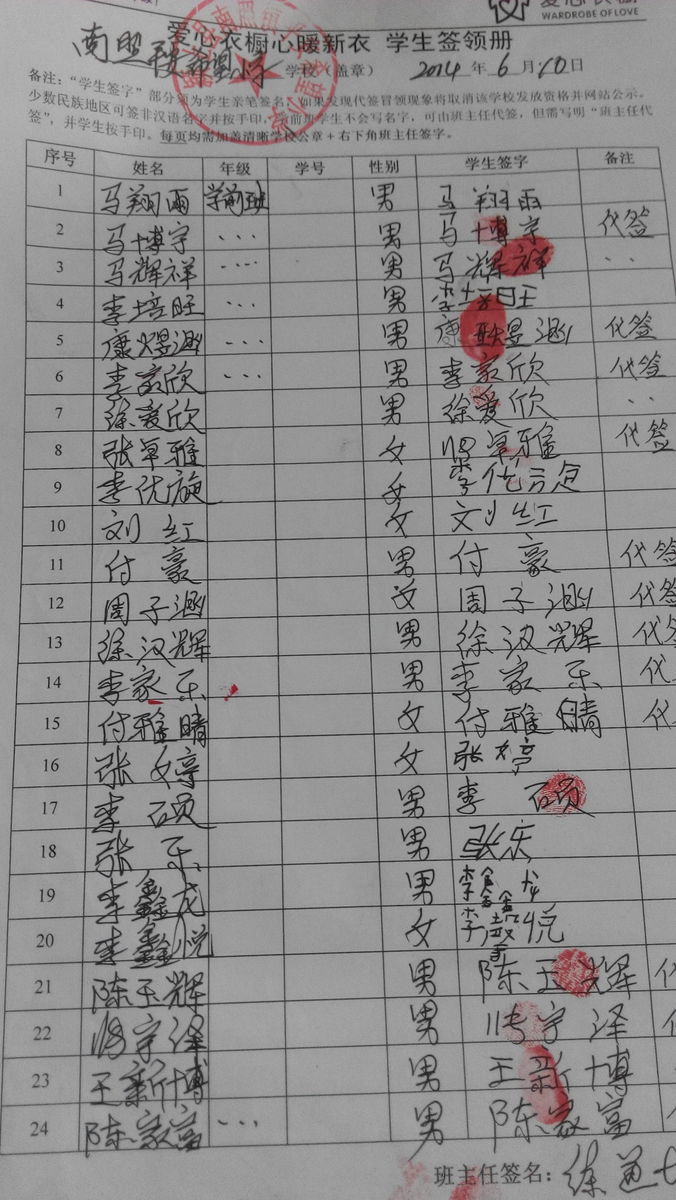 WARDROBE OF LOVE
爱心衣橱心暖新衣 学生签领册
希望小学 学校（盖章） 2014 年 6 月 10 日
备注：“学生签字”部分须为学生亲笔签名，如果发现代签冒领现象将取消该学校发放资格并网站公示。
少数民族地区可签非汉语名字并按手印，学前班学生不会写名字，可由班主任代签，但需写明“班主任代
签”，并学生按手印。每页均需加盖清晰学校公章+右下角班主任签字。
序号 姓名 年级 学号 性别 学生签字 备注
1 马翔雨 学前班 男 马翔雨
2 马博宇 ... 男 马博宇 代签
3 马辉祥 .... 男 马辉祥 ..
4 李培旺 ... 男 李培旺
5 康煜 ... 男 康煜 代签
6 李家欣 ... 男 李家欣 代签
7 徐爱欣 男 徐爱欣 ..
8 张卓雅 女 张卓雅 代签
9 李优旋 女 李优
10 刘红 女 刘红
11 付豪 男 付豪 代签
12 周子 女 周子 代签
13 徐汉辉 男 徐汉辉 代签
14 李家乐 男 李家乐 代
15 付雅晴 女 付雅晴 代
16 张婷 女 张婷
17 李硕 男 李硕
18 张乐 男 张乐
19 李鑫龙 男 李鑫龙
20 李鑫悦 女 李鑫悦
21 陈玉辉 男 陈玉辉 代
22 张宇泽 男 张宇泽
23 王新博 男 王新博
24 陈家富 ... 男 陈家富
班主任签名：徐